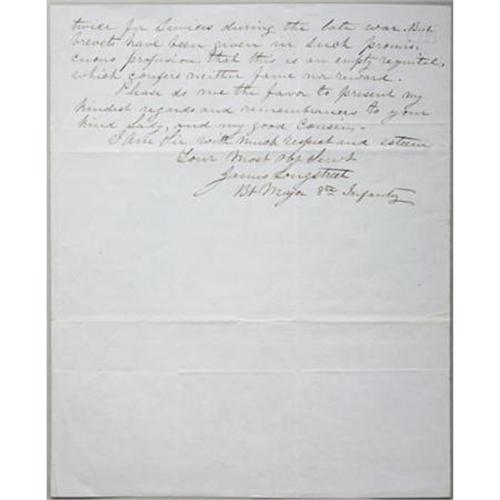 twice for Services during the late war. But
brevets have been given in such promis-
cuous profusion, that this is an empty requital,
which confers neither fame nor reward.
Please do me the favor to present my
kindest regards and remembrances to your
kind Lady, and my good Cousin,
I am Sir with much respect and esteem
Your Most Obt Servt
James Longstreet
Bt Major 8th Infantry